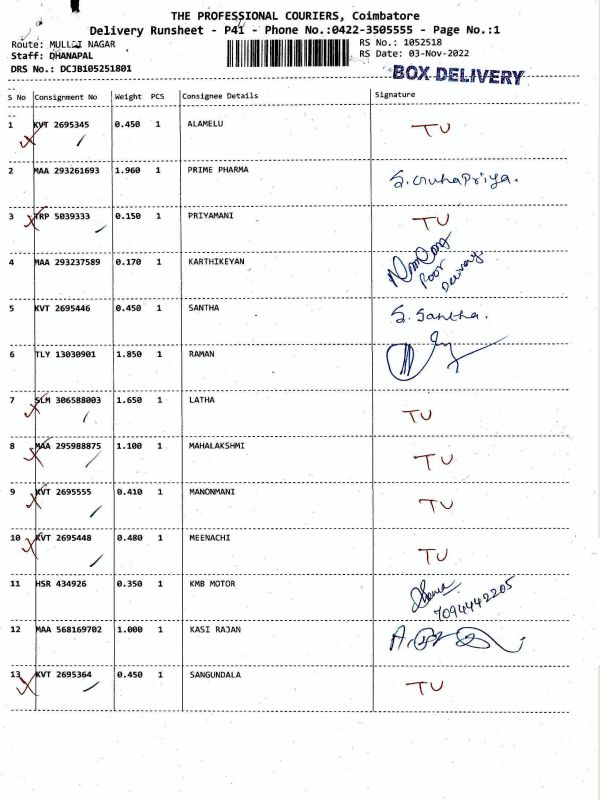 THE PROFESSIONAL COURIERS, Coimbatore
Delivery Runsheet - P41 - Phone No.:0422-3505555 - Page No.:1
Route: MULLAI NAGAR
RS No.: 1052518
Staff: DHANAPAL
RS Date: 03-Nov-2022
DRS No.: DCJB105251801
BOX DELIVERY
S No Consignment No Weight PCS Consignee Details Signature
1 KVT 2695345 0.450 1 ALAMELU TU
2 MAA 293261693 1.960 1 PRIME PHARMA
3 TRP 5039333 0.150 1 PRIYAMANI TU
4 MAA 293237589 0.170 1 KARTHIKEYAN
5 KVT 2695446 0.450 1 SANTHA S. Santha.
6 TLY 13030901 1.850 1 RAMAN
7 SLM 306588003 1.650 1 LATHA TU
8 MAA 295988875 1.100 1 MAHALAKSHMI TU
9 KVT 2695555 0.410 1 MANONMANI TU
10 KVT 2695448 0.480 1 MEENACHI TU
11 HSR 434926 0.350 1 KMB MOTOR 7094442205
12 MAA 568169702 1.000 1 KASI RAJAN
13 KVT 2695364 0.450 1 SANGUNDALA TU